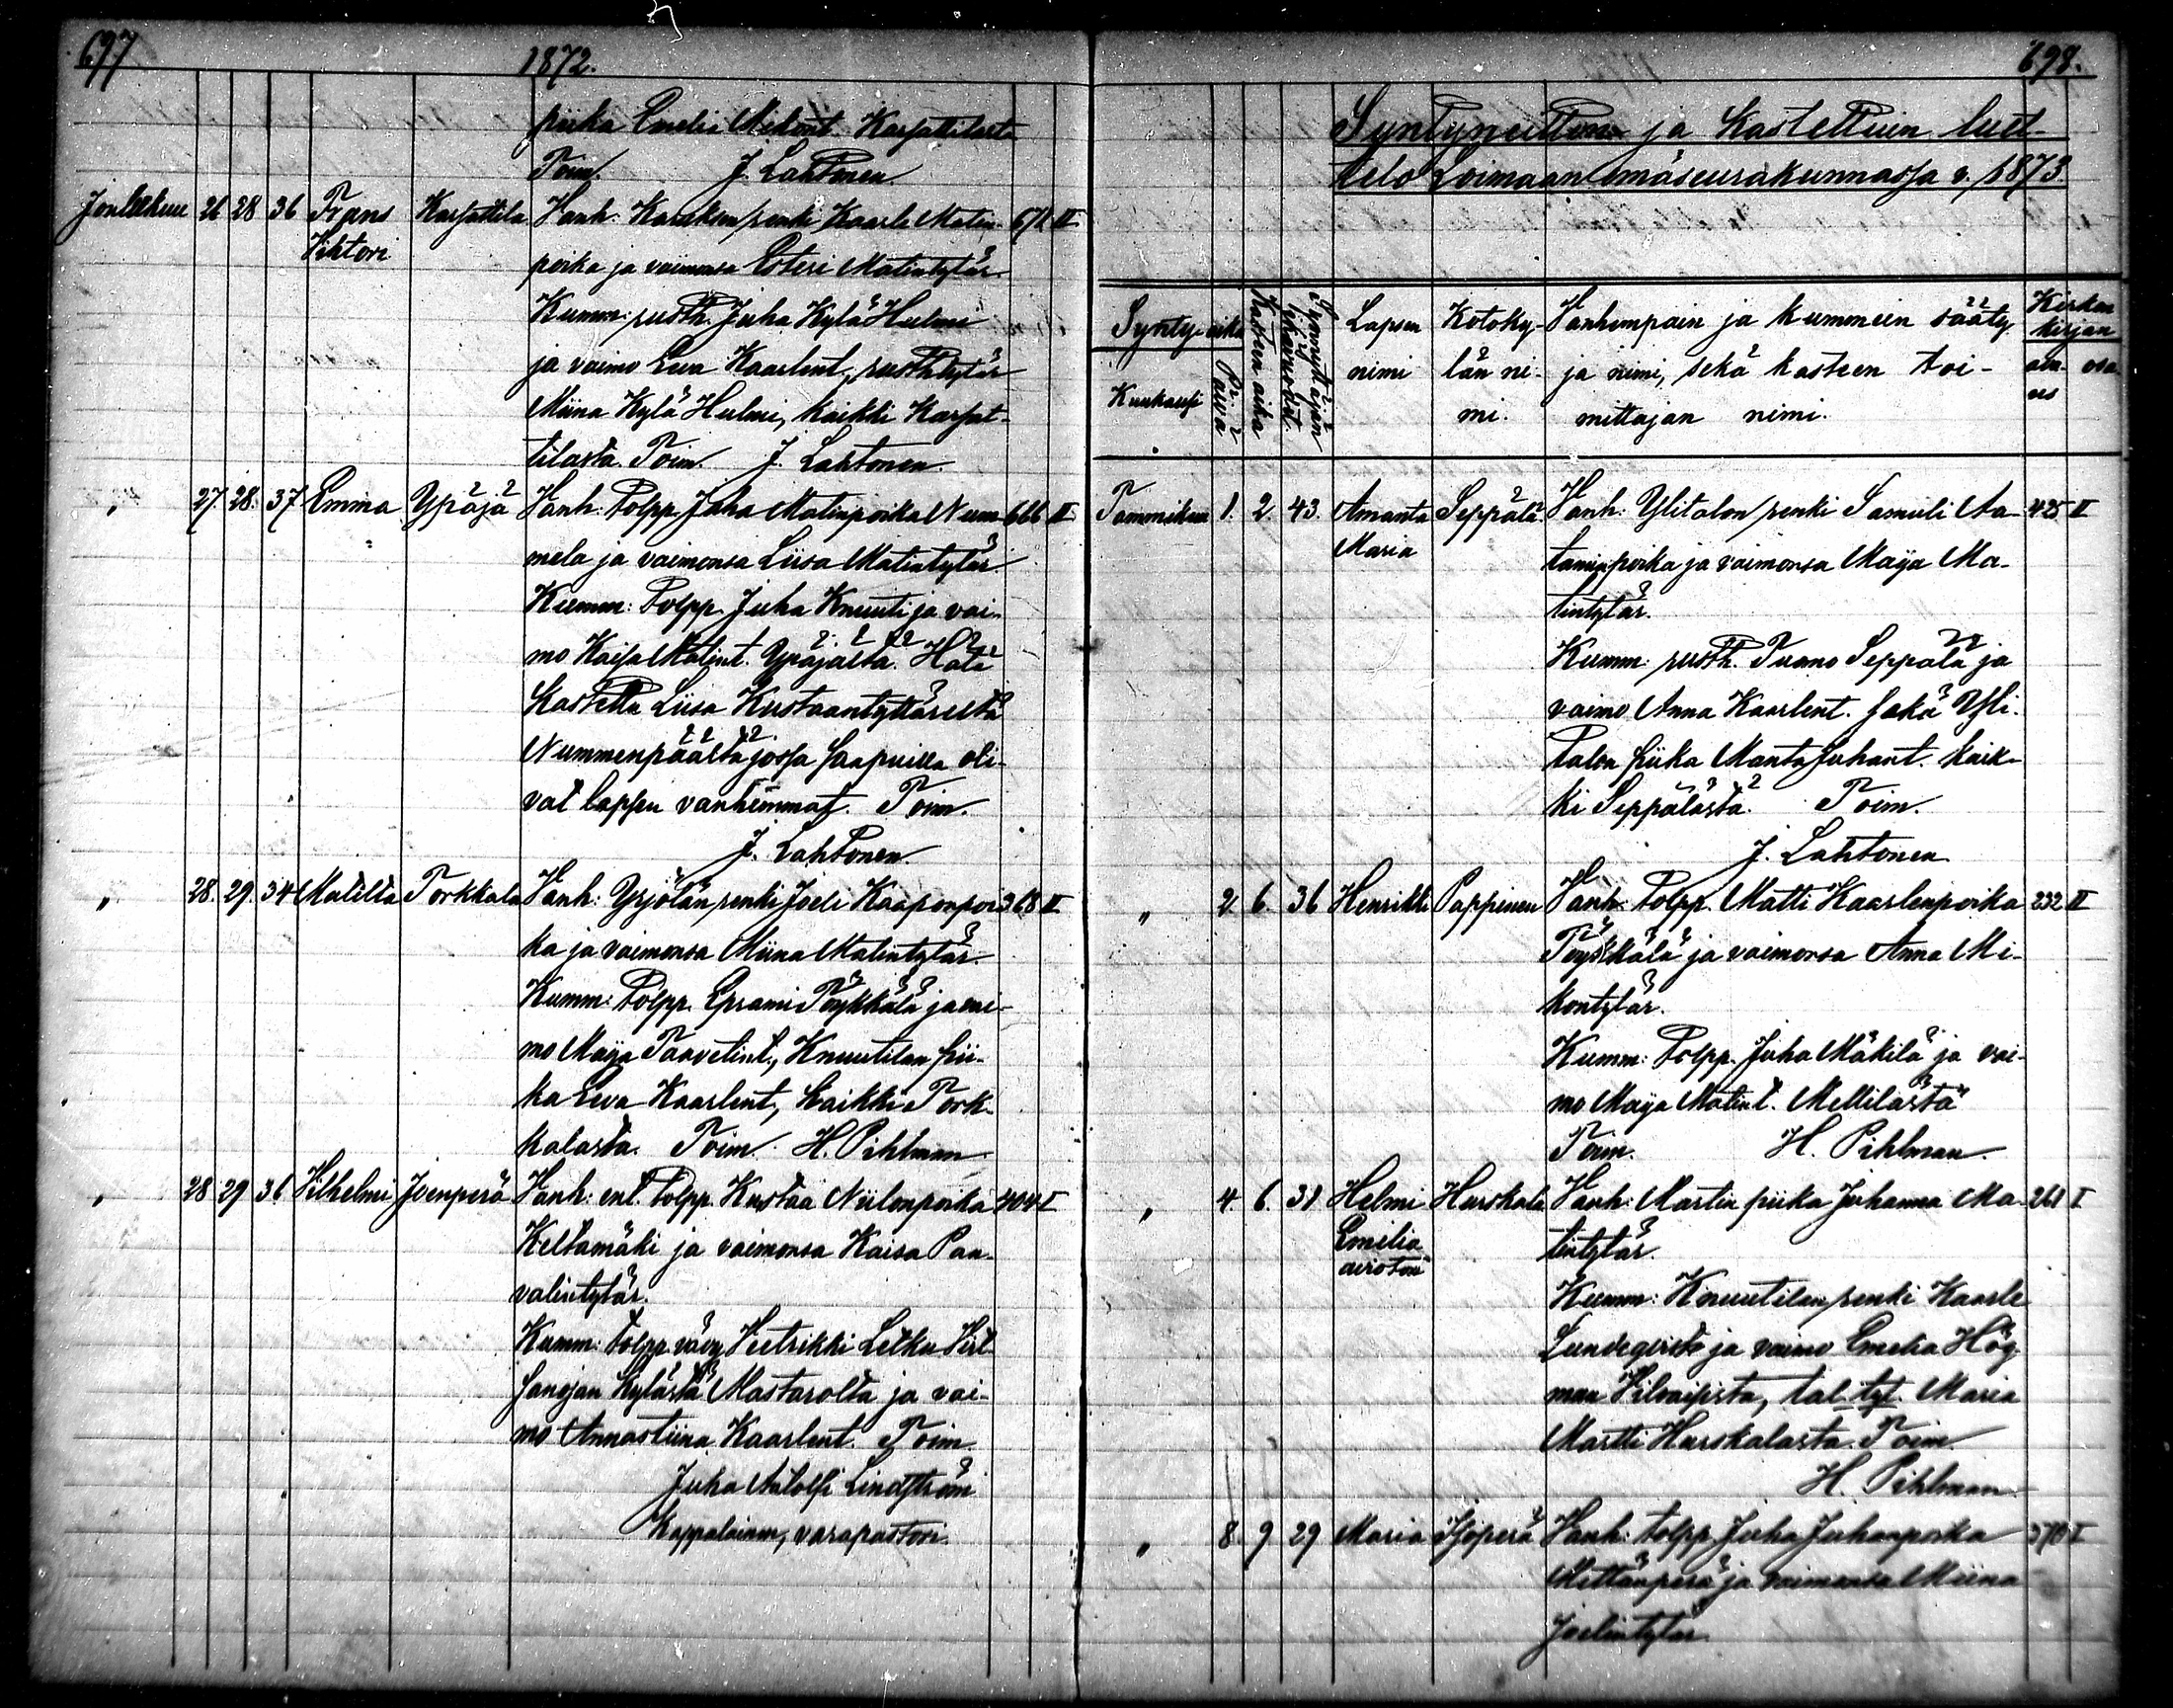 697
1872.
piika Emelia Mikont. Karsattilasta
Toim. J. Lahtonen.
Joulukuu 26 28 36 Frans Karsattila Vanh: renki Kaarle Matin- 678 II
Vihtori poika ja vaimonsa Esteri Matintytär.
Kumm: rusth. Juha Kylä Hulmi
ja vaimo Eeva Kaarlent., rusth. tytär
Miina Kylä Hulmi, kaikki Karsat-
tilasta. Toim. J. Lahtonen.
" 27. 28. 37 Emma Ypäjä Vanh: Torpp. Juha Matinpoika Num- 666 II
mela ja vaimonsa Liisa Matintytär.
Kumm: Torpp. Juha Knuuti ja vai-
mo Kaisa Matint. Ypäjästä. Hätä
kastettu Liisa Kustaantyttäreltä
Nummenpäältä jossa saapuilla oli-
vat lapsen vanhemmat. Toim.
J. Lahtonen
" 28. 29. 34 Matilta Torkkala Vanh: Yrjölän renki Joeli Kaaponpoi- 368 II
ka ja vaimonsa Miina Matintytär.
Kumm: Torpp. Eprami Töykkälä ja vai-
mo Maija Taavetint., Knuutilan pii-
ka Eeva Kaarlent., kaikki Tork-
kalasta. Toim. H. Pihlman
" 28 29 36 Vilhelmi Joenperä Vanh: ent. Torpp. Kustaa Niilonpoika 404 I
Keltamäki ja vaimonsa Kaisa Paa-
valintytär.
Kumm: torpp. vävy Veetrikki Letku Virt-
sanojan kylästä Mastarolta ja vai-
mo Annastiina Kaarlent. Toim.
Juha Aatolfi Lindström
Kappalainen, varapastori.
698.
Syntyneitten ja Kastettuin luet-
telo Loimaan emäseurakunnassa v. 1873
Synty-aika Kasteen aika Synnyttäjän ikävuodet. Lapsen Kotoky- Vanhempain ja kummein sääty Kirkon
kirjan
Kuukausi Päivä nimi län ni- ja nimi, sekä kasteen toi- siv. osa
mi. mittajan nimi.
Tammikuu 1. 2. 43. Amanta Seppälä. Vanh: Ylitalon renki Samuli Aa- 425 II
Maria taminpoika ja vaimonsa Maija Ma-
tintytär.
Kumm: rusth. Tuomo Seppälä ja
vaimo Anna Kaarlent. sekä Yli-
talon piika Manta Juhant. kaik-
ki Seppälästä. Toim.
J. Lahtonen
" 2. 6. 36 Henrikki Pappinen Vanh: Torpp. Matti Kaarlenpoika 232 II
Töykkälä ja vaimonsa Anna Mi-
kontytär.
Kumm: Torpp. Juha Mäkilä ja vai-
mo Maija Matint. Mellilästä
Toim. H. Pihlman.
" 4. 6. 31 Helmi Hurskala Vanh: Martin piika Juhanna Ma- 261 I
Emilia tintytär
avioton
Kumm: Knuutilan renki Kaarle
Lundqvist ja vaimo Emelia Hög-
man tal. tyt. Maria
Martti Hurskalasta. Toim.
H. Pihlman
" 8. 9 29 Maria Isoperä Vanh: torpp. Juha Juhanpoika 370 I
Mettänperä ja vaimonsa Miina
Joelintytär.